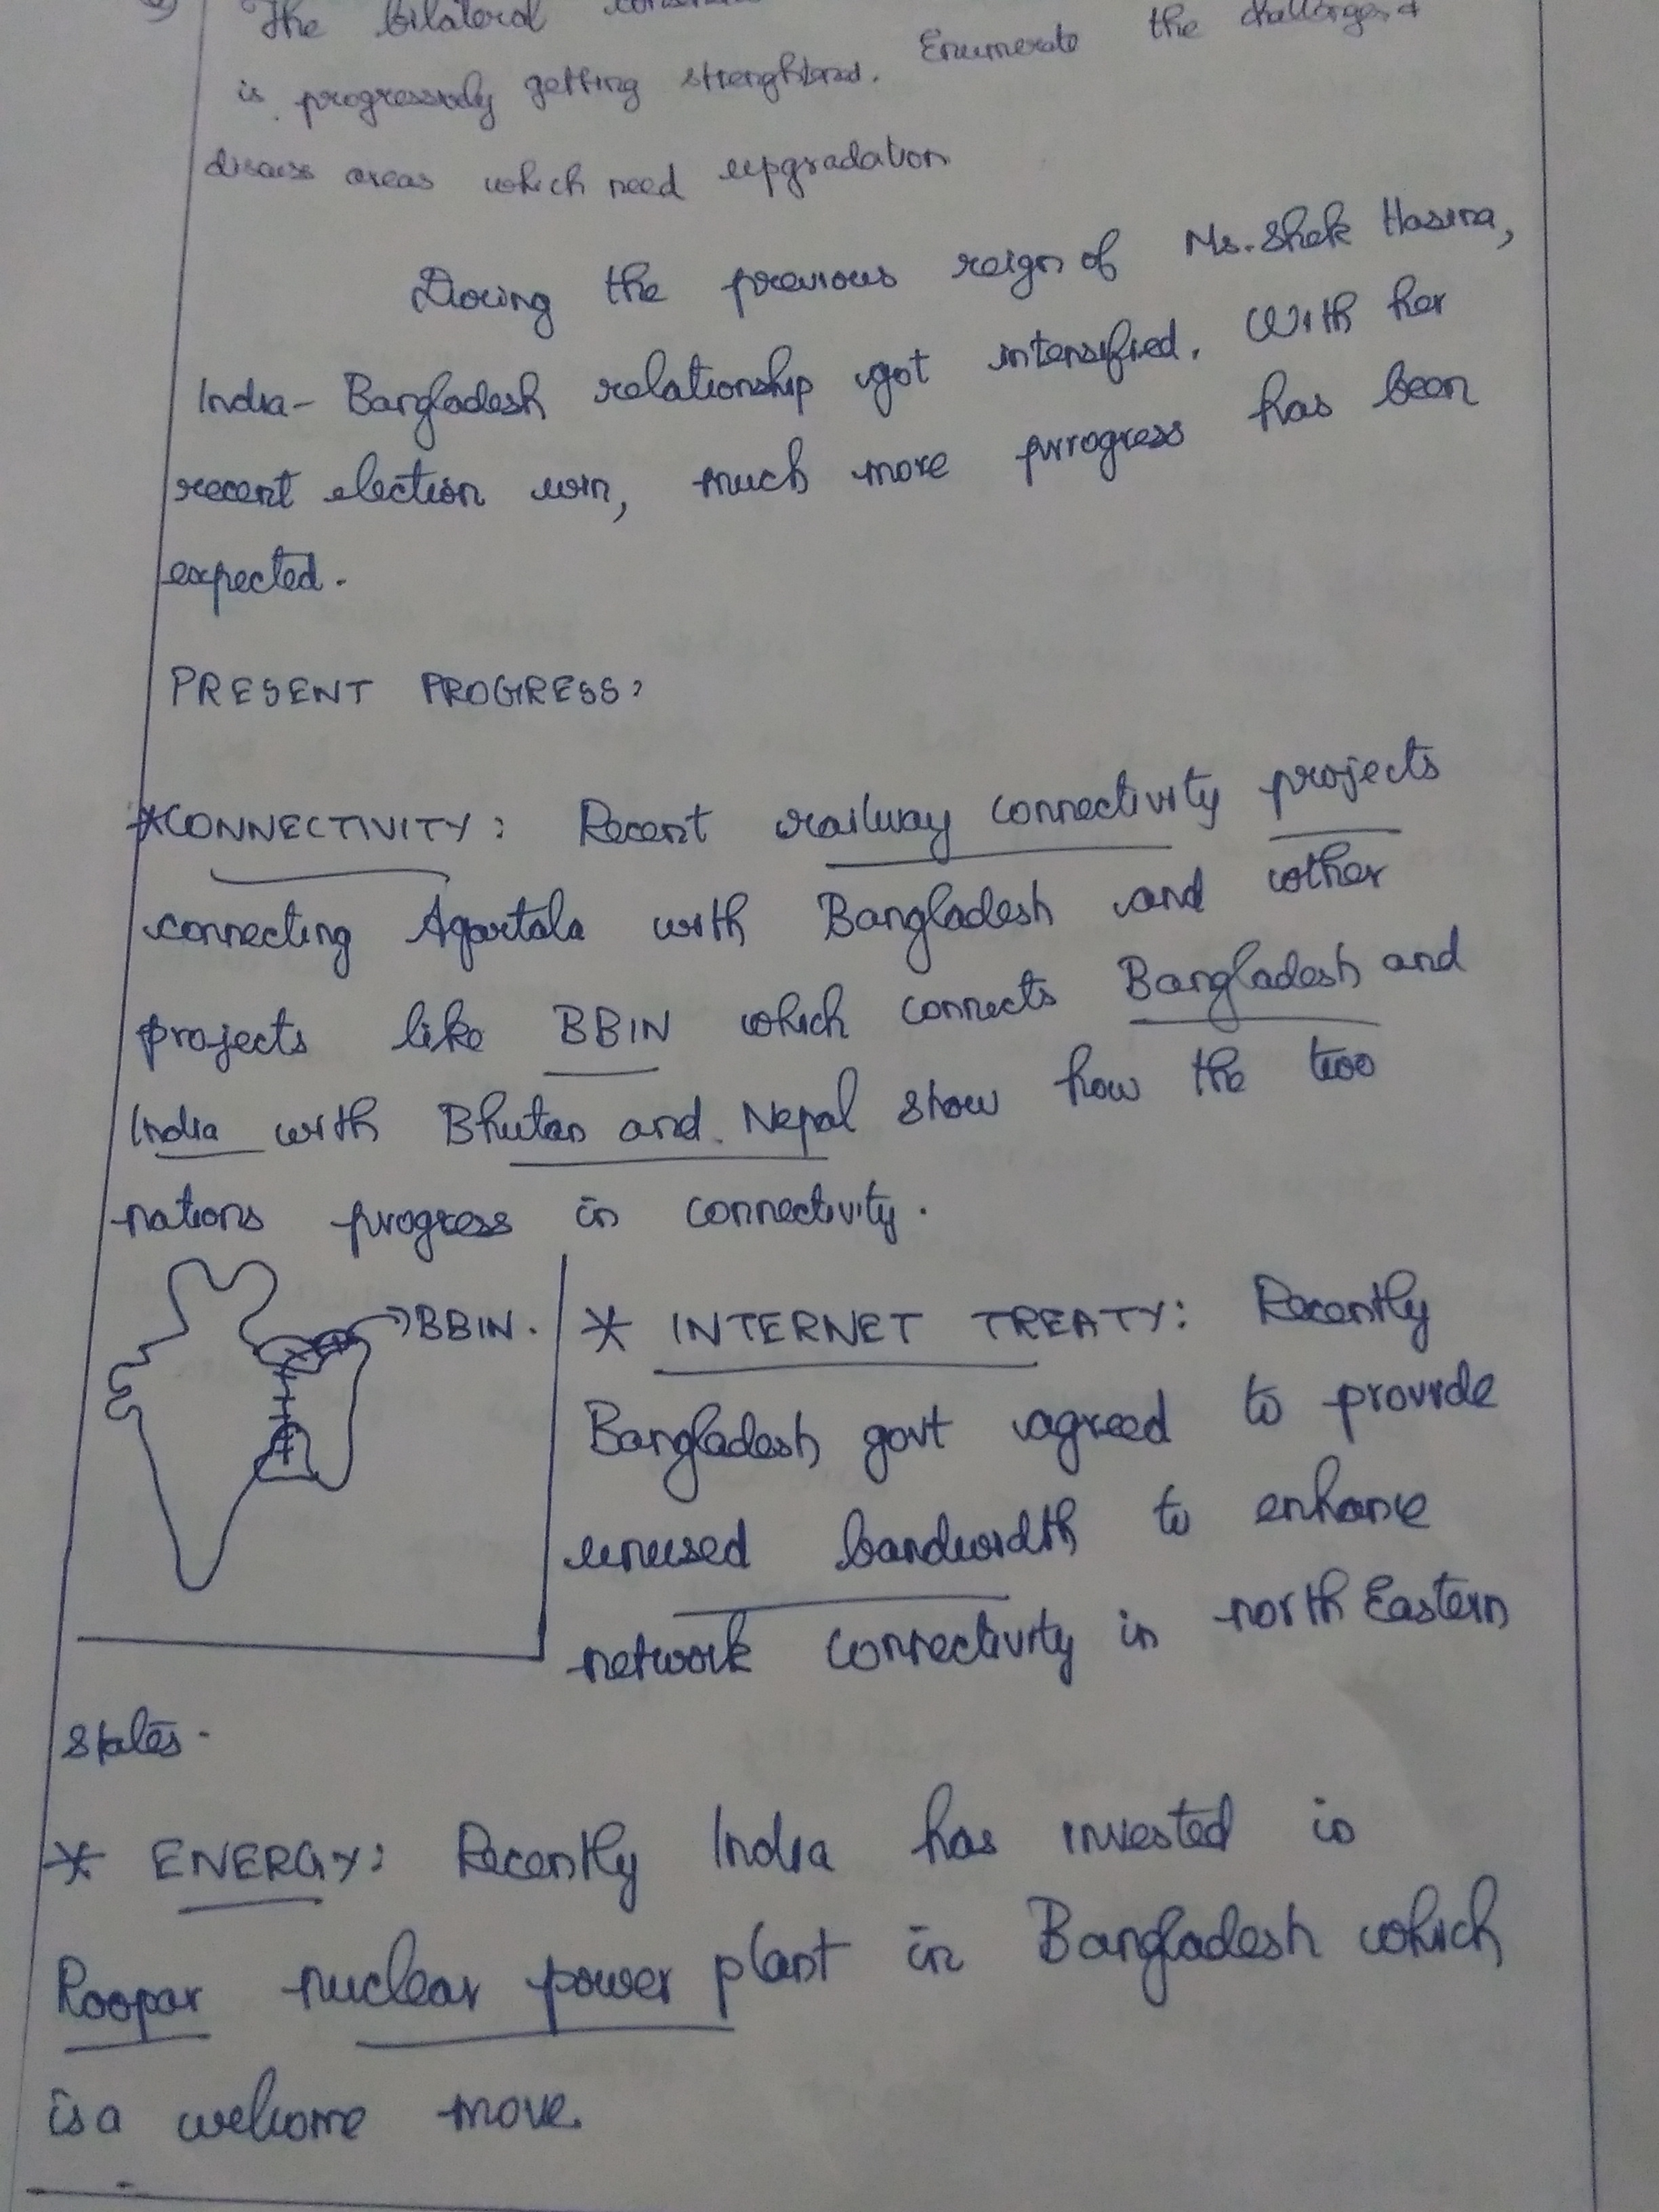 The bilateral
is progressively getting strenghtend. Enumerate the challenges &
discuss areas which need upgradation
During the previous reign of Ms. Shek Hasina,
India - Bangladesh relationship got intensified. With her
recent election win, much more progress has been
expected.
PRESENT PROGRESS:
*CONNECTIVITY: Recent railway connectivity projects
connecting Agartala with Bangladesh and other
projects like BBIN which connects Bangladesh and
India with Bhutan and Nepal show how the two
nations progress in connectivity.
BBIN.
* INTERNET TREATY: Recently
Bangladesh govt agreed to provide
unused bandwidth to enhance
network connectivity in north Eastern
states.
* ENERGY: Recently India has invested in
Roopar nuclear power plant in Bangladesh which
is a welcome move.